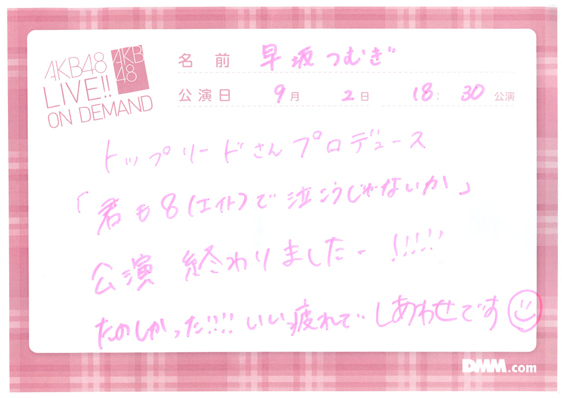 AKB48
LIVE!!
ON DEMAND
AKB
48
名 前 早坂つむぎ
公演日 9月 2日 18:30 公演
トップリードさんプロデュース
「君も8(エイト)で泣こうじゃないか」
公演 終わりましたー!!!!!
たのしかった!!!! いい疲れで しあわせです
DMM.com